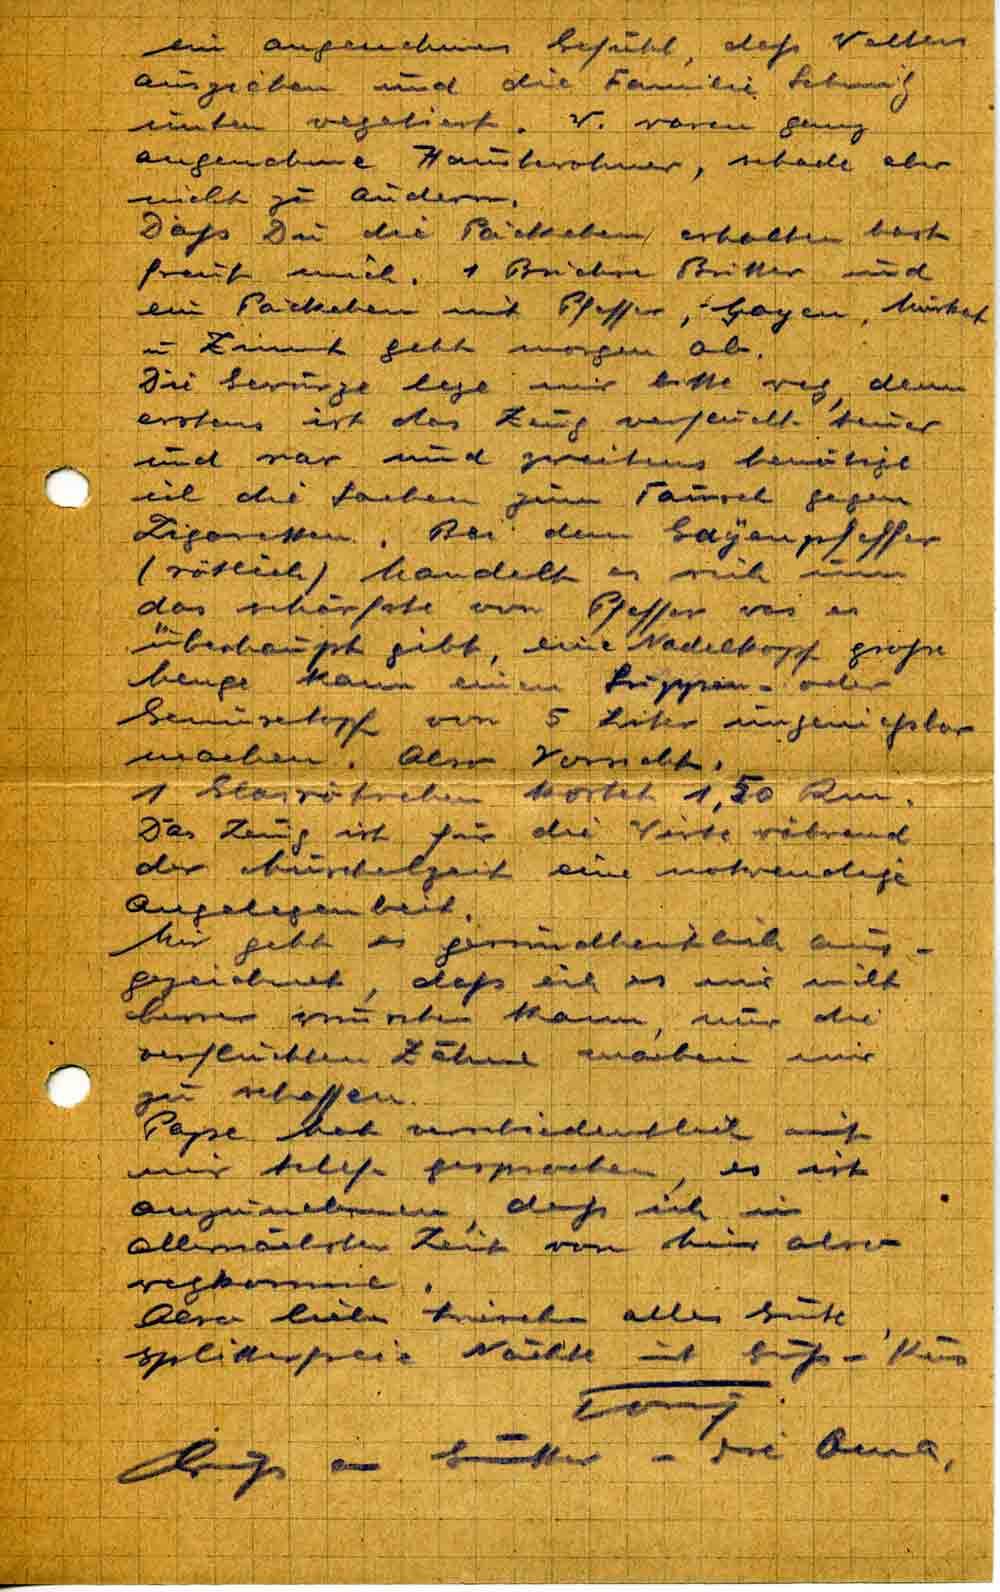 ein angenehmes Gefühl, daß Volters
ausziehen und die Familie Schmitz
unten vegetiert. V. waren ganz
angenehme Hausbewohner, schade aber
nicht zu ändern.
Daß Du die Päckchen erhalten hast
freut mich. 1 Büchse Butter und
ein Päckchen mit Pfeffer, Gayen, Muskat
u Zimmt geht morgen ab.
Die Gewürze lege mir bitte weg, denn
erstens ist das Zeug verflucht teuer
und rar und zweitens benötige
ich die Sachen zum Tausch gegen
Zigaretten. Bei dem Gayenpfeffer
(rötlich) handelt es sich um
das schärfste von Pfeffer was es
überhaupt gibt, eine Nadelkopf große
Menge kann einen Suppen- oder
Gemüsetopf von 5 Liter ungenießbar
machen. Also Vorsicht.
1 Glasröhrchen kostet 1,50 Rm.
Das Zeug ist für die Wirte während
der Muschelzeit eine notwendige
Angelegenheit.
Mir geht es gesundheitlich aus-
gezeichnet, daß ich es mir nicht
besser wünschen kann, nur die
verfluchten Zähne machen mir
zu schaffen.
Pape hat verschiedentlich mit
mir gesprochen, es ist
anzunehmen, daß ich in
allernächster Zeit von hier also
wegkomme.
Also liebe alles Gute,
splitterfreie Nächte mit Gruß - Kuss
Tony
Gruß an Mutter - die Oma.